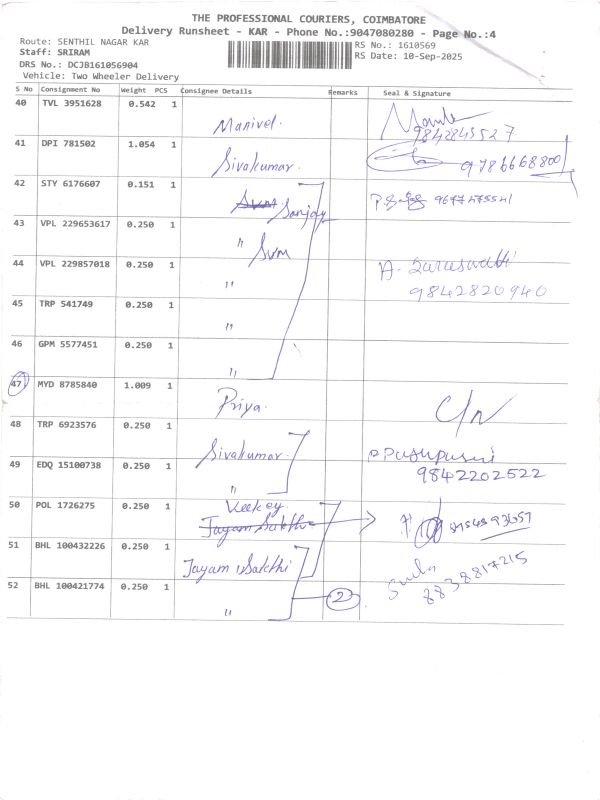 THE PROFESSIONAL COURIERS, COIMBATORE
Delivery Runsheet - KAR - Phone No.:9047080280 - Page No.:4
Route: SENTHIL NAGAR KAR
RS No.: 1610569
Staff: SRIRAM
RS Date: 10-Sep-2025
DRS No.: DCJB161056904
Vehicle: Two Wheeler Delivery
S No Consignment No Weight PCS Consignee Details Remarks Seal & Signature
40 TVL 3951628 0.542 1 Manivel.
9842845527
41 DPI 781502 1.054 1 Sivakumar. 9786668800
42 STY 6176607 0.151 1 Sanjay 9677475541
43 VPL 229653617 0.250 1 " SVM
44 VPL 229857018 0.250 1 " A. Saraswathi
9842820940
45 TRP 541749 0.250 1 "
46 GPM 5577451 0.250 1 "
47 MYD 8785840 1.009 1 Priya. C/N
48 TRP 6923576 0.250 1 Sivakumar.
49 EDQ 15100738 0.250 1 9842202522
50 POL 1726275 0.250 1 Veekey.
Jayam Sakthi
51 BHL 100432226 0.250 1 Jayam Sakthi
8838817215
52 BHL 100421774 0.250 1 " 2